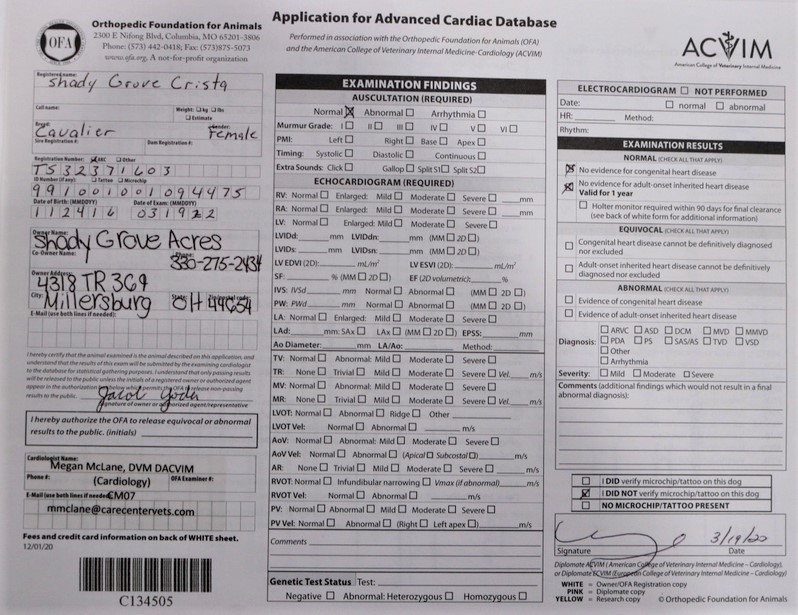 OFA
Orthopedic Foundation for Animals
2300 E Nifong Blvd, Columbia, MO 65201-3806
Phone: (573) 442-0418; Fax: (573)875-5073
www.ofa.org. A not-for-profit organization
Application for Advanced Cardiac Database
Performed in association with the Orthopedic Foundation for Animals (OFA)
and the American College of Veterinary Internal Medicine-Cardiology (ACVIM)
ACVIM
American College of Veterinary Internal Medicine
Registered name:
Shady Grove Crista
Call name: Weight: kg lbs
Estimate
Breed: Gender:
Cavalier Female
Sire Registration #: Dam Registration #:
Registration Number: AKC Other
TS32371603
ID Number (if any): Tattoo Microchip
991001001094475
Date of Birth: (MMDDYY) Date of Exam: (MMDDYY)
112416 031922
Owner Name:
Shady Grove Acres
Co-Owner Name: Phone:
330-275-2434
Owner Address:
4318 TR 369
City: State: Zip/postal code:
Millersburg OH 44654
E-Mail (use both lines if needed):
I hereby certify that the animal examined is the animal described on this application, and
understand that the results of this exam will be submitted by the examining cardiologist
to the database for statistical gathering purposes. I understand that only passing results
will be released to the public unless the initials of a registered owner or authorized agent
appear in the authorization box below which permits the OFA to release non-passing
results to the public.
Jacob Yoder
Signature of owner or authorized agent/representative
I hereby authorize the OFA to release equivocal or abnormal
results to the public. (initials)
Cardiologist Name:
Megan McLane, DVM DACVIM
Phone #: (Cardiology) OFA Examiner #:
E-Mail (use both lines if needed): CM07
mmclane@carecentervets.com
Fees and credit card information on back of WHITE sheet.
12/01/20
C134505
EXAMINATION FINDINGS
AUSCULTATION (REQUIRED)
Normal Abnormal Arrhythmia
Murmur Grade: I II III IV V VI
PMI: Left Right Base Apex
Timing: Systolic Diastolic Continuous
Extra Sounds: Click Gallop Split S1 Split S2
ECHOCARDIOGRAM (REQUIRED)
RV: Normal Enlarged: Mild Moderate Severe mm
RA: Normal Enlarged: Mild Moderate Severe mm
LV: Normal Enlarged: Mild Moderate Severe
LVIDd: mm LVIDdn: mm (MM 2D)
LVIDs: mm LVIDsn: mm (MM 2D)
LV EDVI (2D): mL/m² LV ESVI (2D): mL/m²
SF: % (MM 2D) EF (2D volumetric): %
IVS: IVSd mm Normal Abnormal (MM 2D)
PW: PWd mm Normal Abnormal (MM 2D)
LA: Normal Enlarged: Mild Moderate Severe
LAd: mm: SAx LAx (MM 2D) EPSS: mm
Ao Diameter: mm LA/Ao: Method:
TV: Normal Abnormal: Mild Moderate Severe
TR: None Trivial Mild Moderate Severe Vel. m/s
MV: Normal Abnormal: Mild Moderate Severe
MR: None Trivial Mild Moderate Severe Vel. m/s
LVOT: Normal Abnormal Ridge Other
LVOT Vel: Normal Abnormal m/s
AoV: Normal Abnormal: Mild Moderate Severe
AoV Vel: Normal Abnormal (Apical Subcostal) m/s
AR: None Trivial Mild Moderate Severe m/s
RVOT: Normal Infundibular narrowing Vmax (if abnormal) m/s
RVOT Vel: Normal Abnormal m/s
PV: Normal Abnormal Mild Moderate Severe
PV Vel: Normal Abnormal (Right Left apex) m/s
Comments
Genetic Test Status Test:
Negative Abnormal: Heterozygous Homozygous
ELECTROCARDIOGRAM NOT PERFORMED
Date: normal abnormal
HR: Method:
Rhythm:
EXAMINATION RESULTS
NORMAL (CHECK ALL THAT APPLY)
No evidence for congenital heart disease
No evidence for adult-onset inherited heart disease
Valid for 1 year
Holter monitor required within 90 days for final clearance
(see back of white form for additional information)
EQUIVOCAL (CHECK ALL THAT APPLY)
Congenital heart disease cannot be definitively diagnosed
nor excluded
Adult-onset inherited heart disease cannot be definitively
diagnosed nor excluded
ABNORMAL (CHECK ALL THAT APPLY)
Evidence of congenital heart disease
Evidence of adult-onset inherited heart disease
Diagnosis: ARVC ASD DCM MVD MMVD
PDA PS SAS/AS TVD VSD
Other
Arrhythmia
Severity: Mild Moderate Severe
Comments (additional findings which would not result in a final
abnormal diagnosis):
I DID verify microchip/tattoo on this dog
I DID NOT verify microchip/tattoo on this dog
NO MICROCHIP/TATTOO PRESENT
3/19/20
Signature Date
Diplomate ACVIM (American College of Veterinary Internal Medicine - Cardiology),
or Diplomate ECVIM (European College of Veterinary Internal Medicine - Cardiology)
WHITE = Owner/OFA Registration copy
PINK = Diplomate copy
YELLOW = Research copy © Orthopedic Foundation for Animals